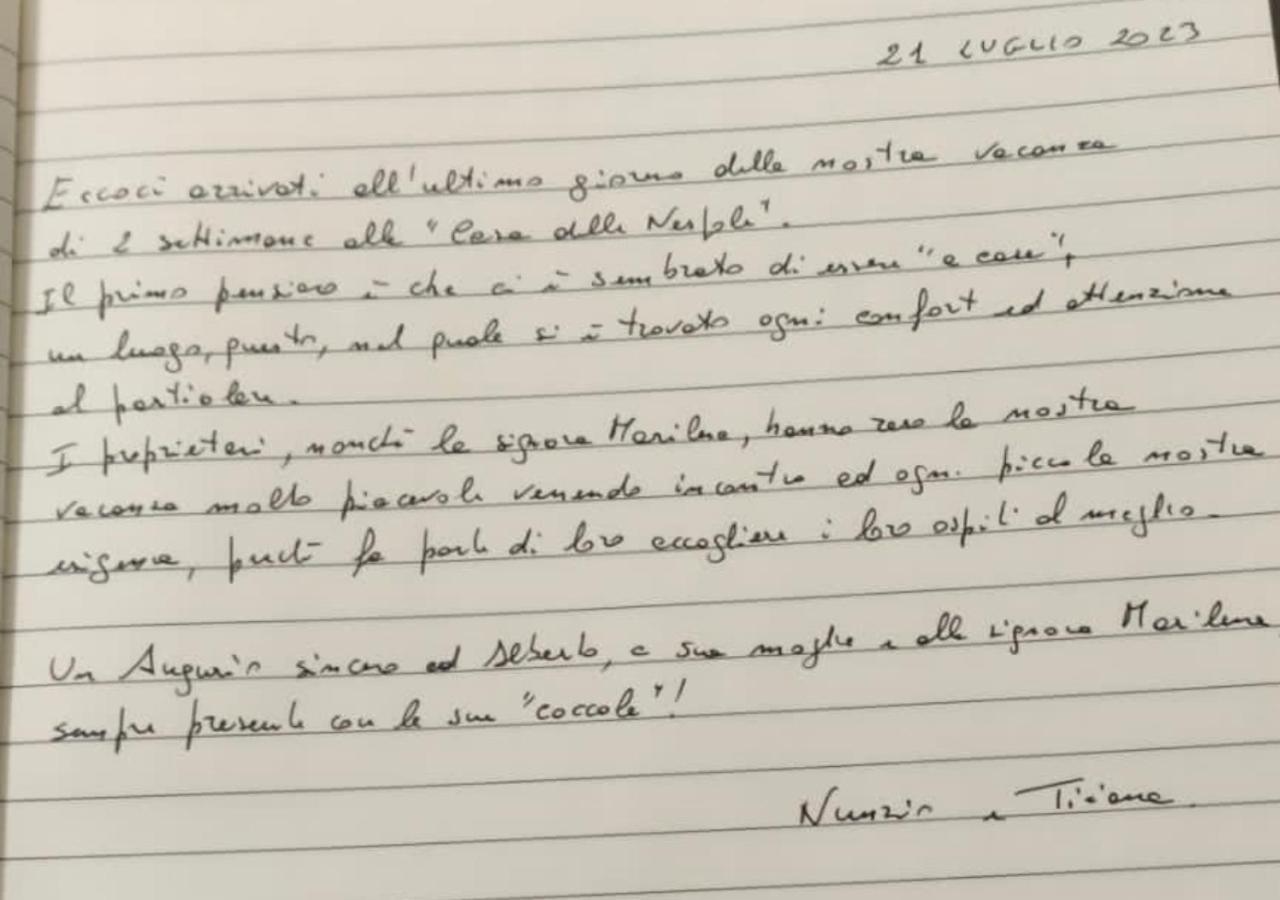 21 LUGLIO 2023
Eccoci arrivati all'ultimo giorno della nostra vacanza
di 2 settimane alle "Casa delle Nespole".
Il primo pensiero è che ci è sembrato di essere "a casa",
un luogo, questo, nel quale si è trovato ogni confort ed attenzione
al particolare.
I proprietari, nonchè la signora Marilena, hanno reso la nostra
vacanza molto piacevole venendo incontro ed ogni piccola nostra
esigenza, perchè fa parte di loro accogliere i loro ospiti al meglio.
Un Augurio sincero ad Alberto, a sua moglie e alla signora Marilena
sempre presente con le sue "coccole"!
Nunzio e Tiziana